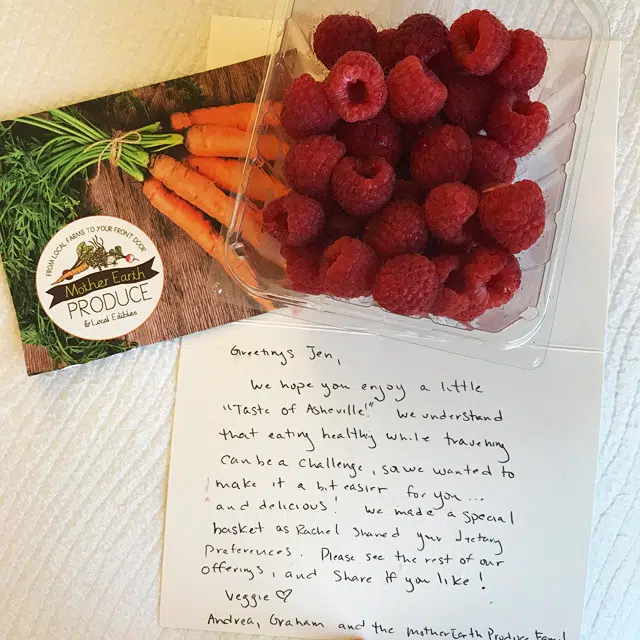 FROM LOCAL FARMS TO YOUR FRONT DOOR
Mother Earth
PRODUCE
& Local Edibles
Greetings Jen,
We hope you enjoy a little
"Taste of Asheville!" We understand
that eating healthy while traveling
can be a challenge, so we wanted to
make it a bit easier for you...
and delicious! We made a special
basket as Rachel shared your dietary
preferences. Please see the rest of our
offerings, and share if you like!
Veggie ♡
Andrea, Graham and the Mother Earth Produce Family